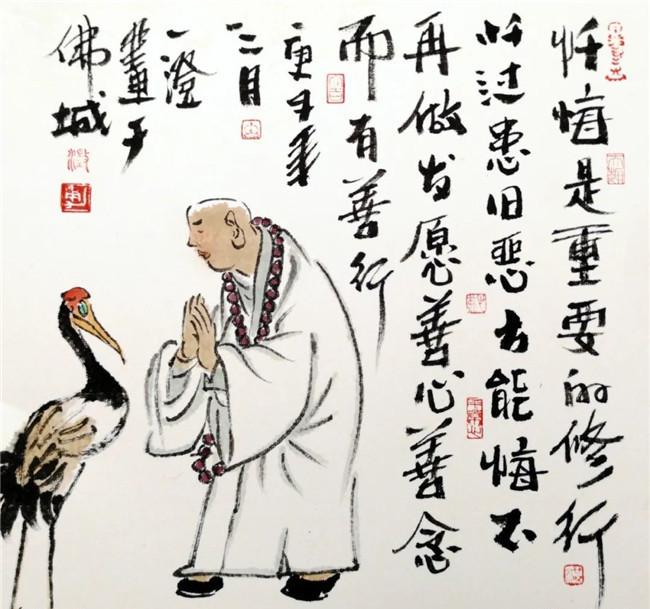 忏悔是重要的修行
忏过患旧恶方能悔不
再做发愿善心善念
而有善行
庚子年
三月
一澄
于
佛城